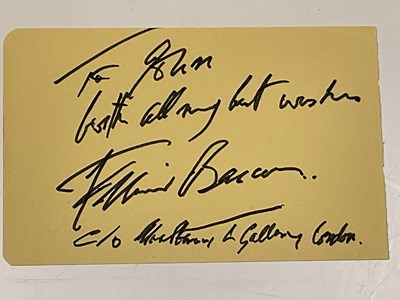 To John
with all my best wishes
Francis Bacon.
c/o Marlborough Gallery London.